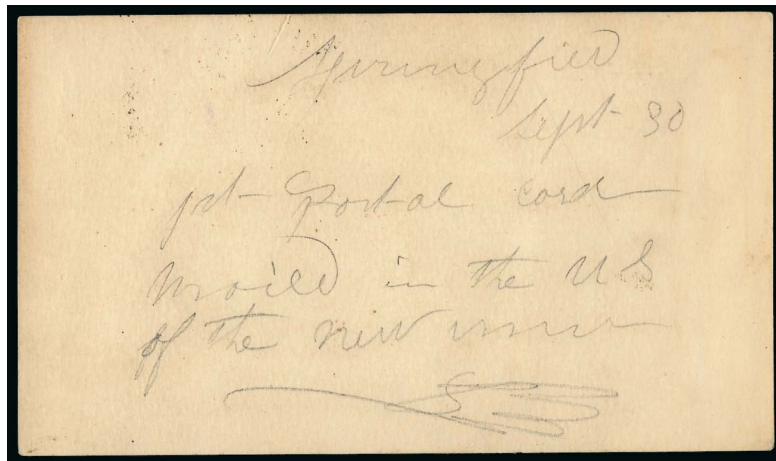 Springfield
Sept 30
1st Postal card
mailed in the US
of the new issue